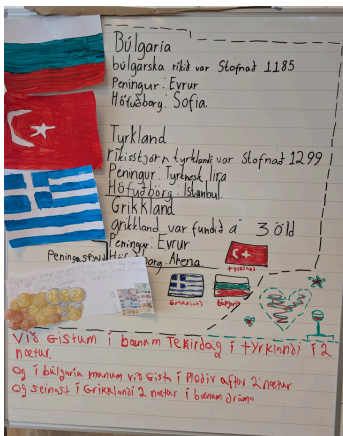 Búlgaria
búlgarska ríkið var Stofnað 1185
Peningur: Evrur
Höfuðborg: Sofia.
Tyrkland
ríkisstjórn tyrklands var Stofnað 1299
Peningur: Tyrknesk lira
Höfuðbörg: Istanbul.
Grikkland
grikkland var fundið á 3 öld
Peningur: Evrur
borg: Aþena
tyrkland
Grikkland
búlgaria
Við Gistum í bænum Tekirdag í tyrklandi í 2
nætur.
Og í búlgaria munum við Gista í Plodiv aftur 2 nætur
Og seinast í Grikklandi 2 nætur í bænum dráma